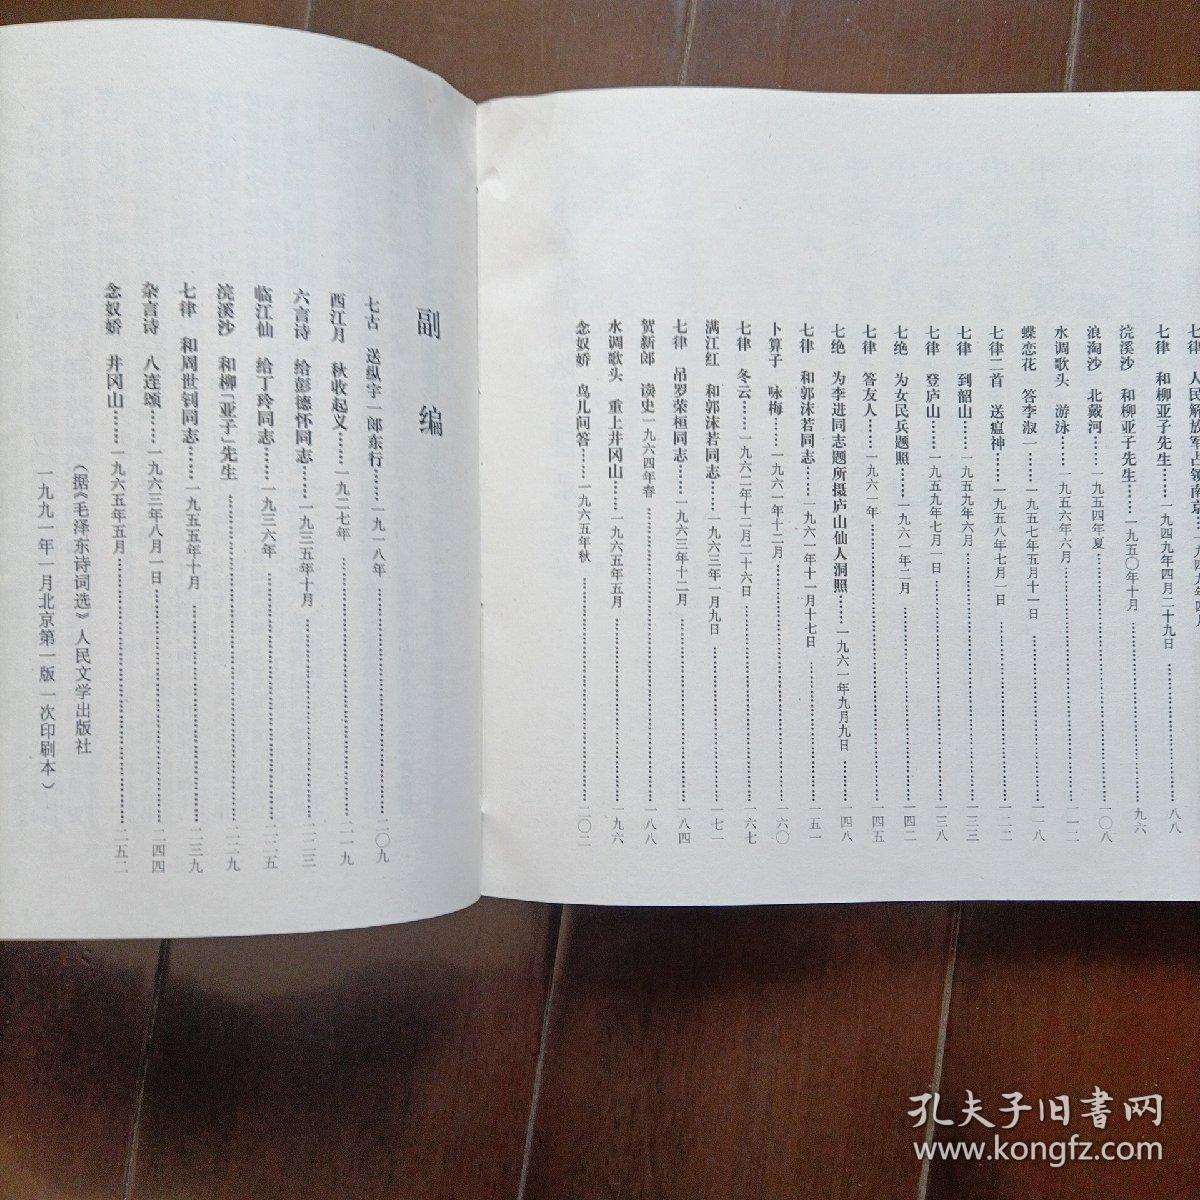 七律 人民解放军占领南京
七律 和柳亚子先生……一九四九年四月二十九日……八八
浣溪沙 和柳亚子先生……一九五〇年十月……九六
浪淘沙 北戴河……一九五四年夏……一〇八
水调歌头 游泳……一九五六年六月……一一二
蝶恋花 答李淑一……一九五七年五月十一日……一一八
七律二首 送瘟神……一九五八年七月一日……一二二
七律 到韶山……一九五九年六月……一三三
七律 登庐山……一九五九年七月一日……一三八
七绝 为女民兵题照……一九六一年二月……一四二
七律 答友人……一九六一年……一四五
七绝 为李进同志题所摄庐山仙人洞照……一九六一年九月九日……一四八
七律 和郭沫若同志……一九六一年十一月十七日……一五一
卜算子 咏梅……一九六一年十二月……一六〇
七律 冬云……一九六二年十二月二十六日……一六七
满江红 和郭沫若同志……一九六三年一月九日……一七一
七律 吊罗荣桓同志……一九六三年十二月……一八四
贺新郎 读史 一九六四年春……一八八
水调歌头 重上井冈山……一九六五年五月……一九六
念奴娇 鸟儿问答……一九六五年秋……二〇二
副编
七古 送纵宇一郎东行……一九一八年……二〇九
西江月 秋收起义……一九二七年……二一九
六言诗 给彭德怀同志……一九三五年十月……二二三
临江仙 给丁玲同志……一九三六年……二二五
浣溪沙 和柳「亚子」先生……二二九
七律 和周世钊同志……一九五五年十月……二三九
杂言诗 八连颂……一九六三年八月一日……二四四
念奴娇 井冈山……一九六五年五月……二五二
（据《毛泽东诗词选》人民文学出版社
一九九一年一月北京第一版一次印刷本）
孔夫子旧书网
www.kongfz.com